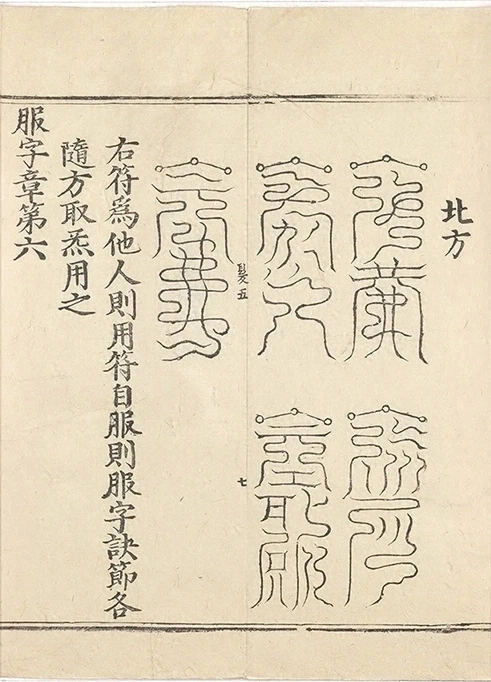 北方
髮五
七
右符爲他人則用符自服則服字訣節各
隨方取炁用之
服字章第六